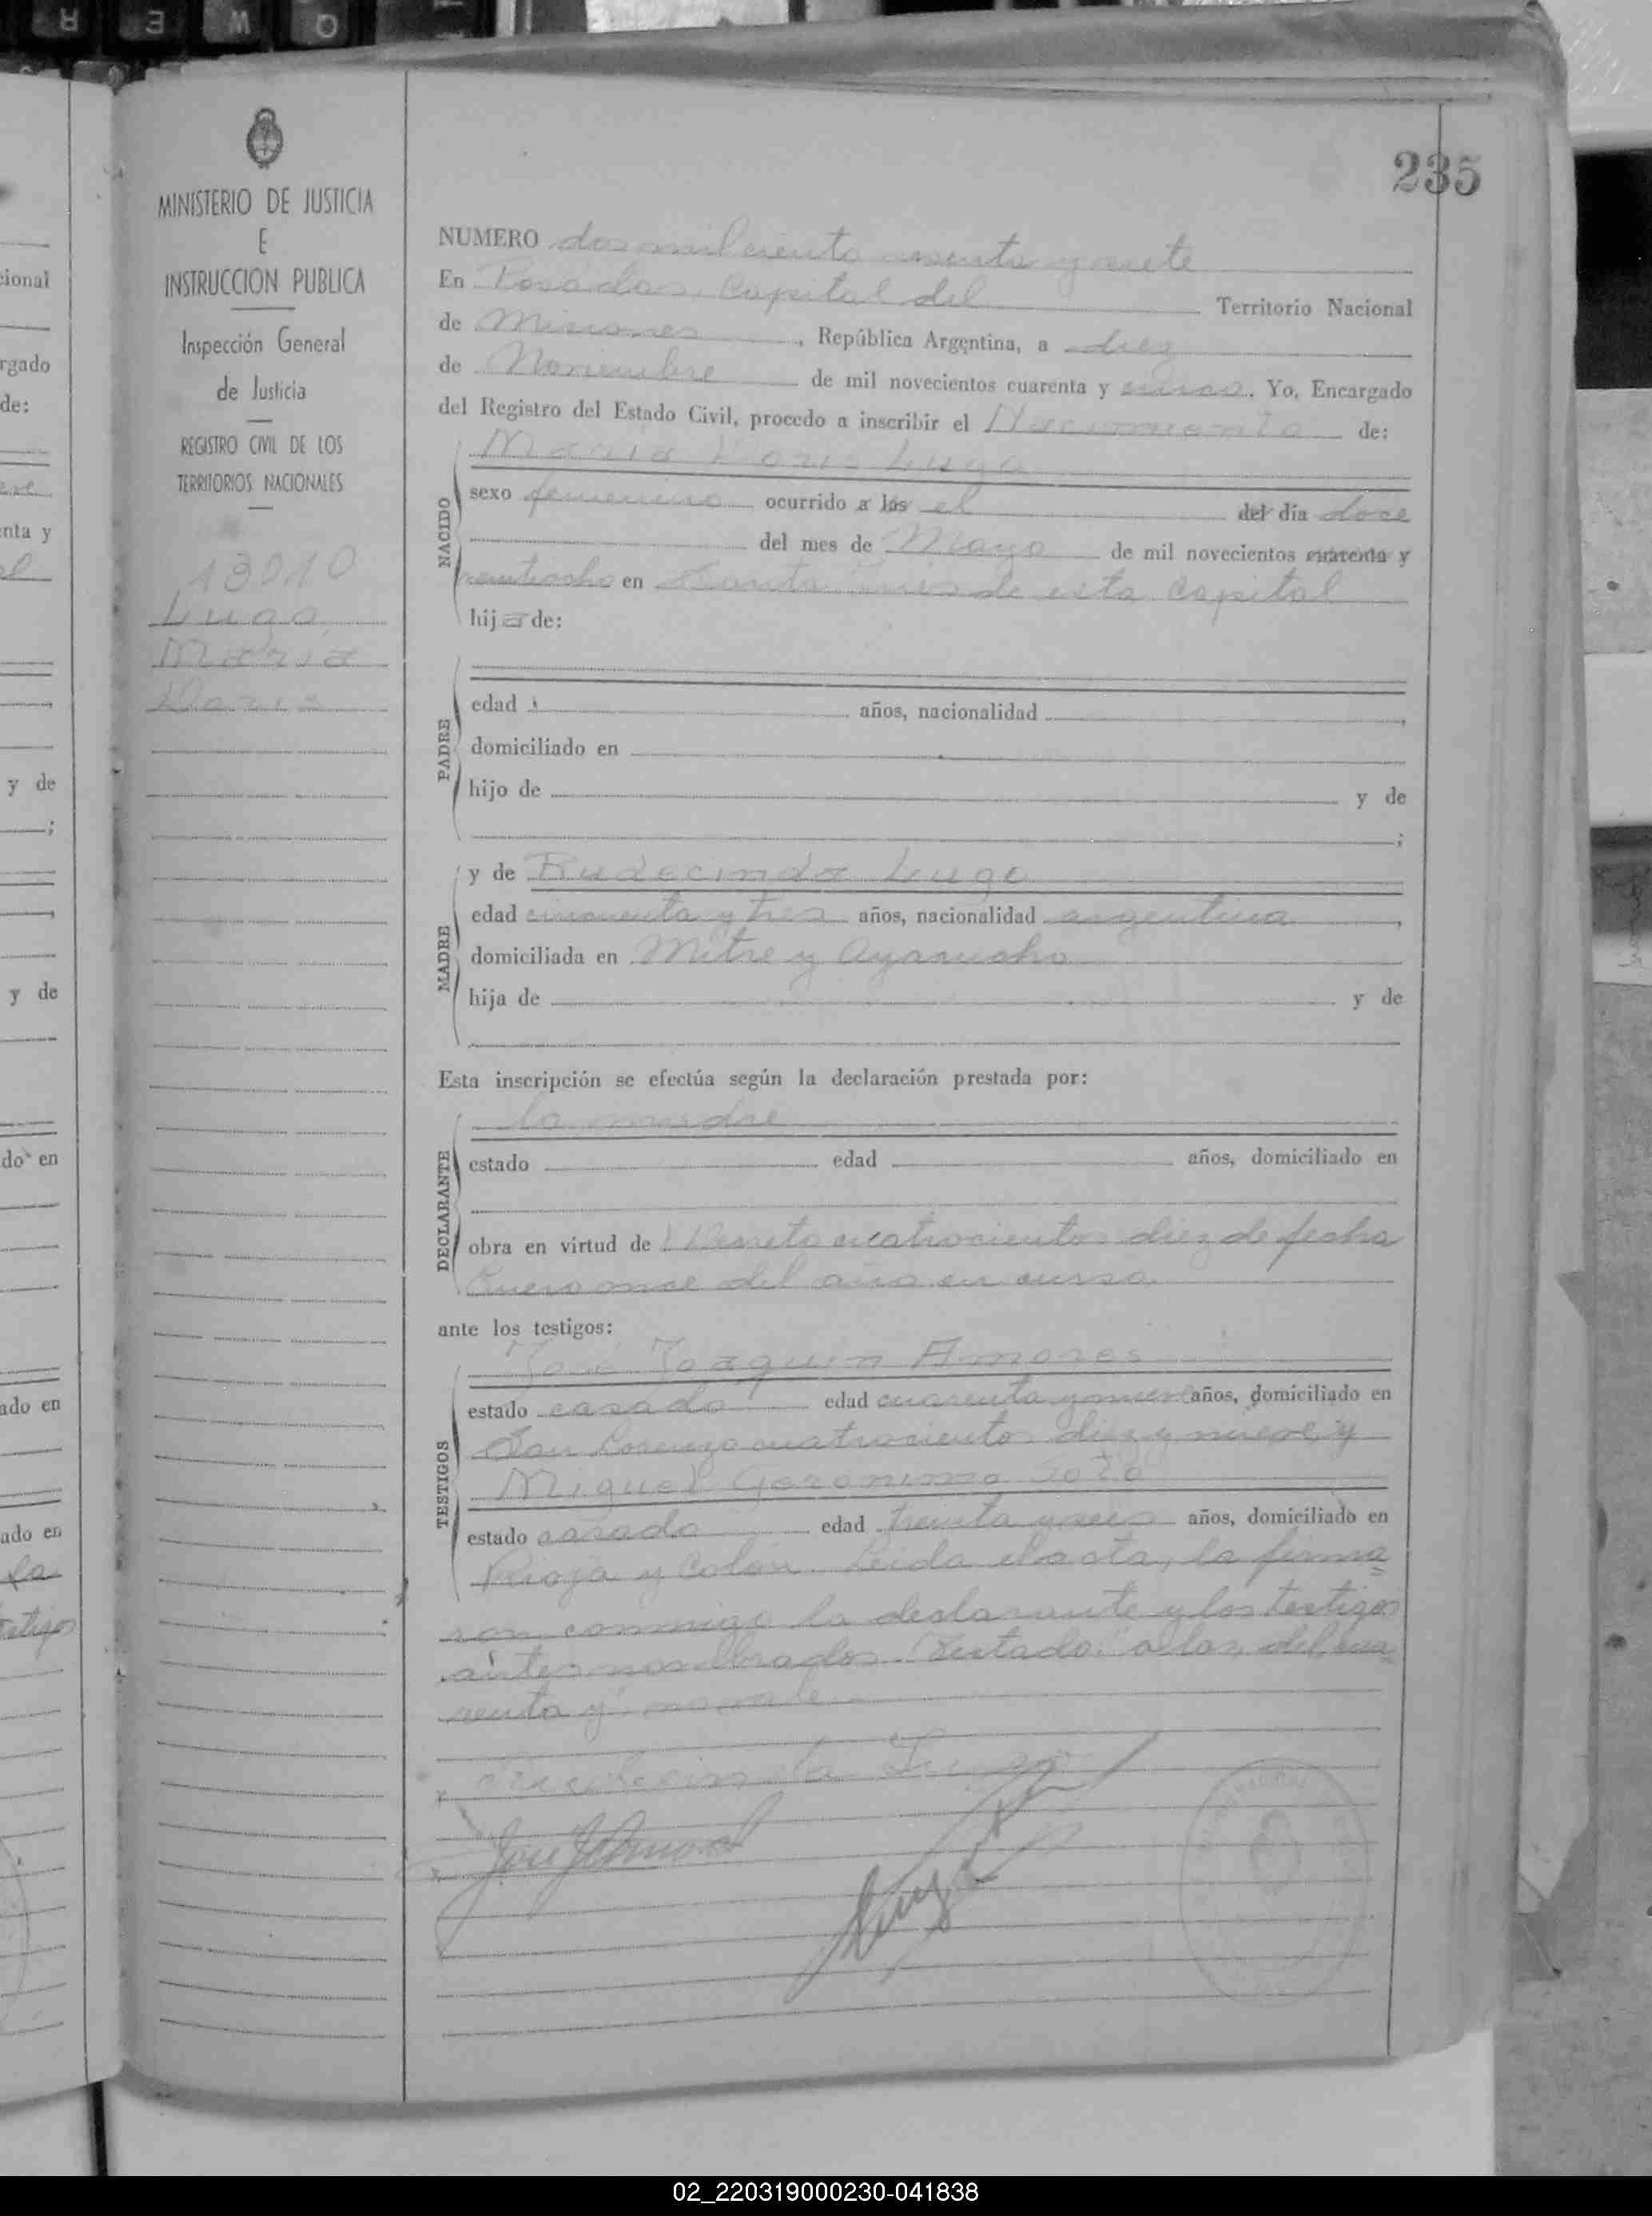 R E W Q
235
MINISTERIO DE JUSTICIA
E
INSTRUCCION PUBLICA
Inspección General
de Justicia
REGISTRO CIVIL DE LOS
TERRITORIOS NACIONALES
13010
Lugo
Maria
Doris
cional
rgado
de:
nta y
y de
y de
do en
ado en
ado en
la
NUMERO dos mil ciento sesenta y siete
En Posadas, Capital del Territorio Nacional
de Misiones, República Argentina, a diez
de Noviembre de mil novecientos cuarenta y cinco. Yo, Encargado
del Registro del Estado Civil, procedo a inscribir el Nacimiento de:
NACIDO
Maria Doris Lugo
sexo femenino ocurrido a las el del día doce
del mes de Mayo de mil novecientos cuarenta y
veintiocho en Santa Inés de esta Capital
hija de:
PADRE
edad años, nacionalidad ,
domiciliado en
hijo de y de
;
MADRE
y de Rudecinda Lugo
edad cincuenta y tres años, nacionalidad argentina ,
domiciliada en Mitre y Ayacucho
hija de y de
Esta inscripción se efectúa según la declaración prestada por:
DECLARANTE
la madre
estado edad años, domiciliado en
obra en virtud de Decreto cuatrocientos diez de fecha
Enero once del año en curso
ante los testigos:
TESTIGOS
José Joaquin Amores
estado casado edad cuarenta y nueve años, domiciliado en
San Lorenzo cuatrocientos diez y nueve y
Miguel Geronimo Soto
estado casado edad treinta y seis años, domiciliado en
Rioja y Colón. Leida el acta, la firma=
ron conmigo la declarante y los testigos
antes nombrados. Testado: "a las, del, cua=
renta y": no vale.
Lugo
02_220319000230-041838